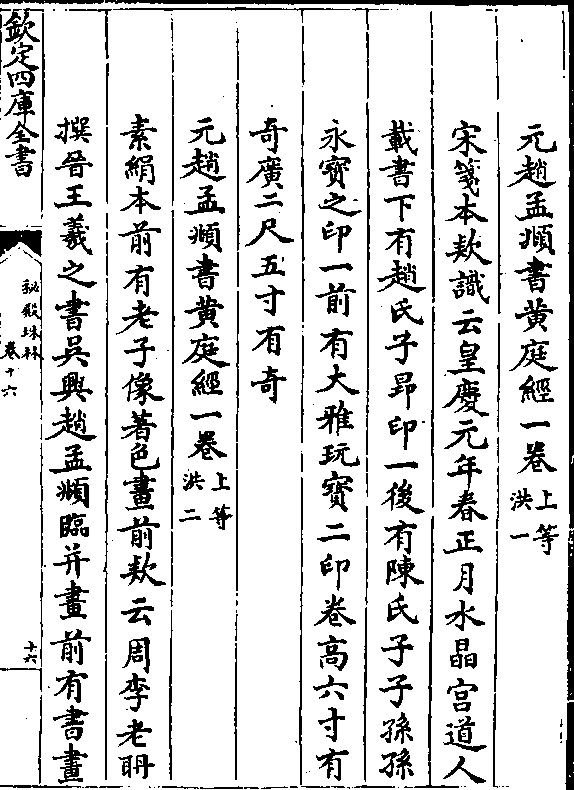 元趙孟頫書黄庭經一卷上等洪一
宋箋本欵識云皇慶元年春正月水晶宫道人
載書下有趙氏子昻印一後有陳氏子子孫孫
永寳之印一前有大雅玩寳二印卷高六寸有
奇廣二尺五寸有奇
元趙孟頫書黄庭經一卷上等洪二
素絹本前有老子像著色畫前欵云周李老耼
撰晉王羲之書吳興趙孟頫臨并畫前有書畫
欽定四庫全書
秘殿珠林
卷十六
十六